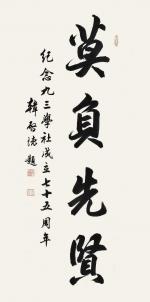 莫負先賢
紀念九三學社成立七十五周年
韓啓德題